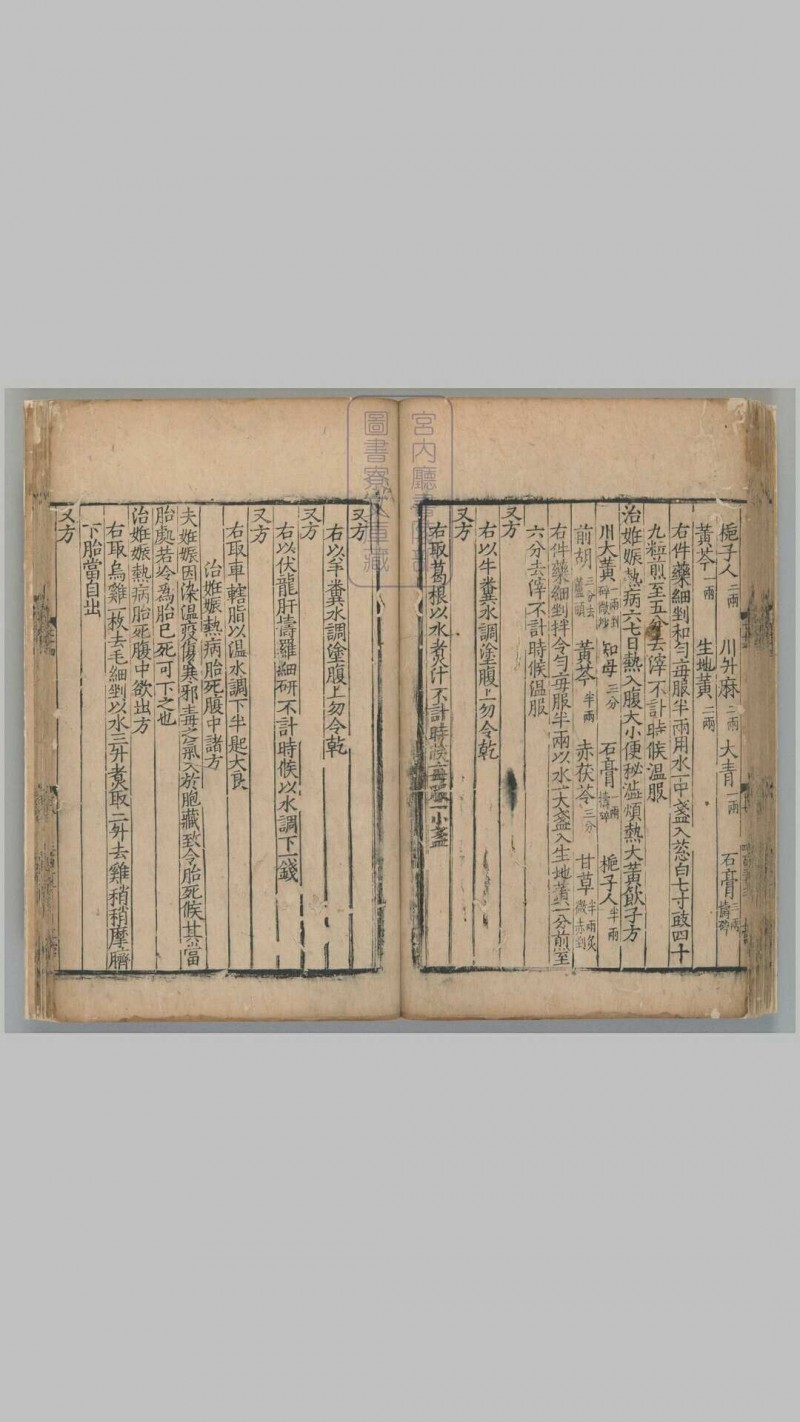 梔子人二兩 川升麻二兩 大青一兩 石膏二兩擣碎
黃芩一兩 生地黃二兩
右件藥細剉和勻每服半兩用水一中盞入葱白七寸豉四十
九粒煎至五分去滓不計時候溫服
治姙娠熱病六七日熱入腹大小便秘澁煩熱大黃飲子方
川大黃一兩剉碎微炒 知母三分 石膏一兩擣碎 梔子人半兩
前胡三分去蘆頭 黃芩半兩 赤茯苓三分 甘草半兩炙微赤剉
右件藥細剉拌令勻每服半兩以水一大盞入生地黃一分煎至
六分去滓不計時候溫服
又方
右以牛糞水調塗腹上勿令乾
又方
右取葛根以水煮汁不計時候每服一小盞
又方
右以羊糞水調塗腹上勿令乾
又方
右以伏龍肝擣羅細研不計時候以水調下一錢
又方
右取車轄脂以溫水調下半匙大良
治姙娠熱病胎死腹中諸方
夫姙娠因染溫疫傷寒邪毒之氣入於胞藏致令胎死候其當
胎處若冷為胎已死可下之也
治姙娠熱病胎死腹中欲出方
右取烏雞一枚去毛細剉以水三升煮取二升去雞稍稍摩臍
下胎當自出
又方
宮內廳
圖書寮
庫藏